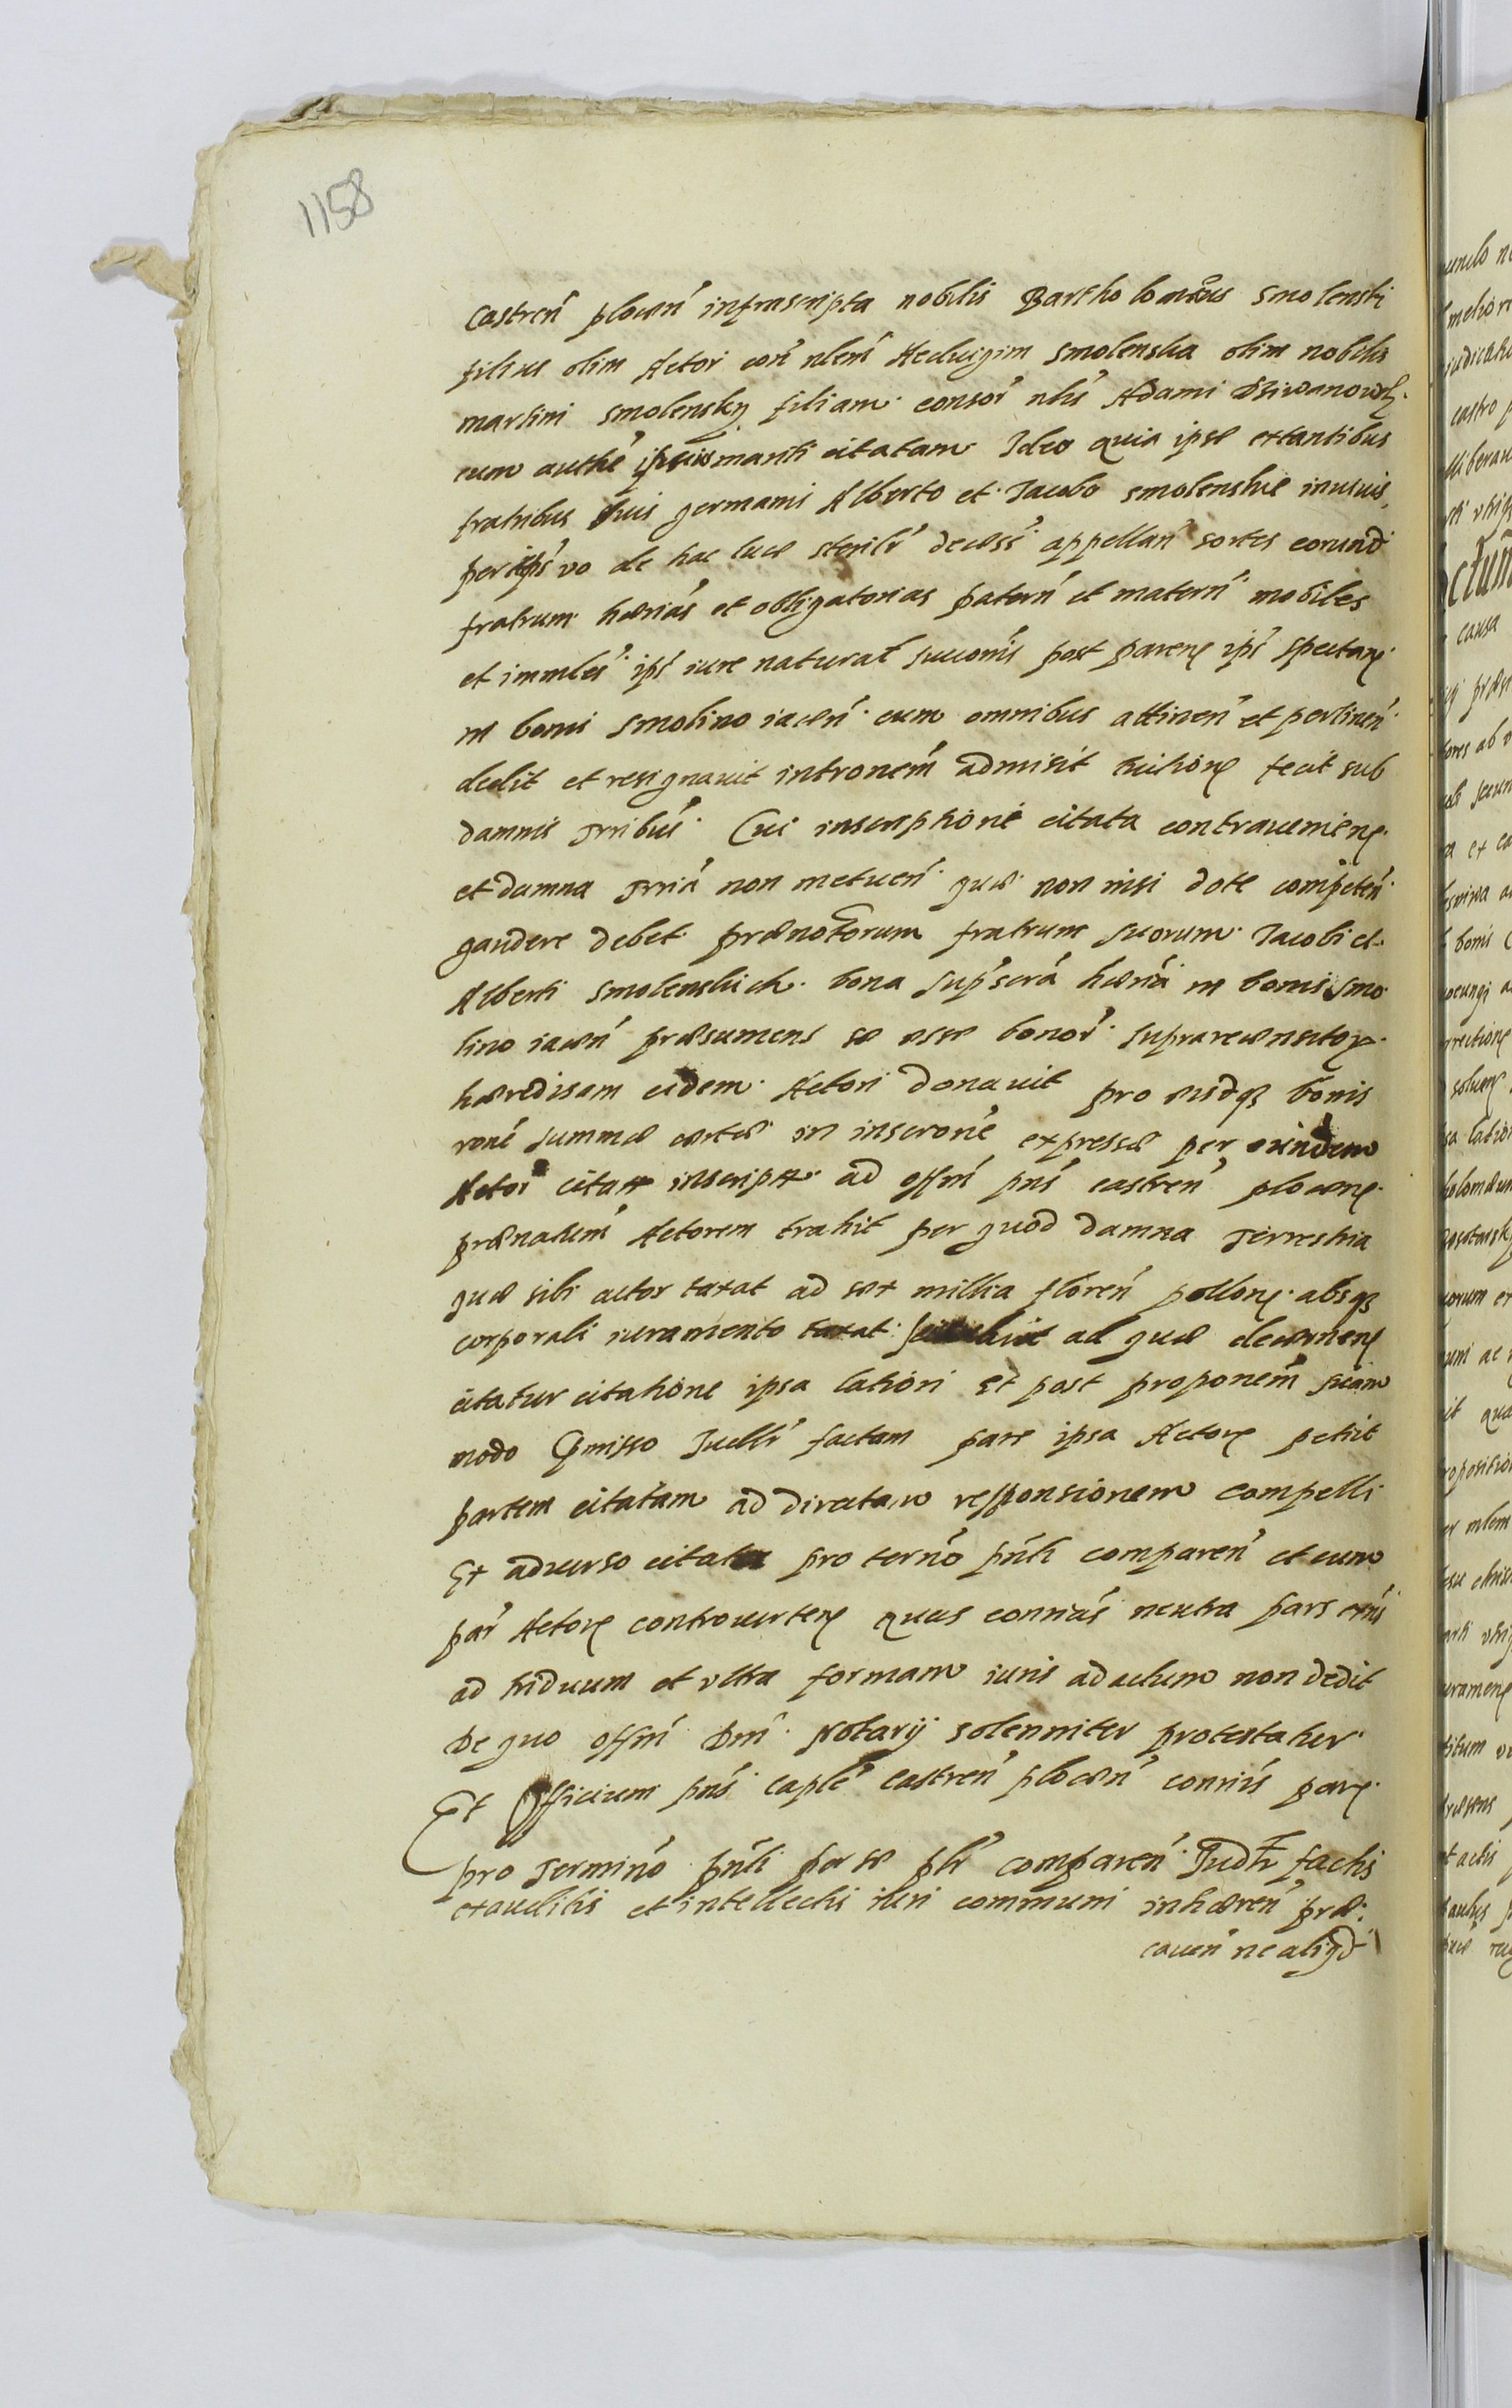 1158
castreñploceñ infrascripta nobilis Bartholomeus Smolenski
filius olim Actor coñ nleḿ Hedvigim Smolenska olim nobilis
martini Smolensky filiam consoŕ nlis Adami
cum authé ipsius mariti citatam Ideo quia ipsæ extantibus
fratribus suis germanis Alberto et Jacobo Smolenskie
vo de hac luce steriĺr decess appellań sortes eorund
fratrum hæriás et obligatorias paterń et materń mobiles
et immles ipś iure natural succonis post parenᶒ ipś spectanᶒ
in bonis Smolino iaceń cum omnibus attineń et pertineń
dedit et resignavit intronem admisit tuitionᶒ fecit sub
damnis Trribus Cui inscriptione citata contravenienᶒ
et damna Trriá non metueń quæ non nisi dote competeń
gaudere debet prænotorum fratrum suorum Jacobi et
Alberti Smolenskich bona supscrá hæriá in bonis Smo
lino iaceń præsumens se esse bonoŕ suprarecensitoꝝ
hæredisam eidem Actori donavit pro eisdqꝫ bonis
roné summæ certæ in inscroné expressæ per eundem
Actoŕ citatæ inscriptæ ad offm pns castreń plocenᶒ
prænatum Actorem trahit per quod damna Terrestria
quæ sibi actor taxat ad sex millia floreń pollonᶒ absqꝫ
corporali iuramento taxat ad quæ decernenᶒ
citatur citatione ipsa latiori Et post proponem suam
modo præmisso Juellr factam pars ipsa Actorᶒ petiit
partem citatam ad directam responsionem compelli
Ex adverso citata pro termo pnti compareń et cum
paŕ Actorᶒ controvertenᶒ quas conniás neutra pars
ad triduum et ultra formam iuris ad actum non dedit
De quo offm Dni Notarij solenniter protestatur
Et Officium pns caple Castreń ploceń connis parᶒ
pro Termino pnti per se plr compareń Judtr factis
exauditis et intellectis iuri communi inhæreń præ:
caveń ne aliqd